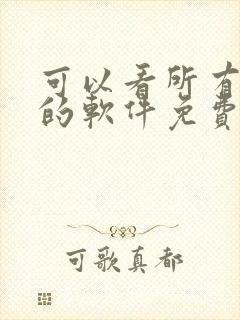 可以看所有
的軟件免費
可歌真都